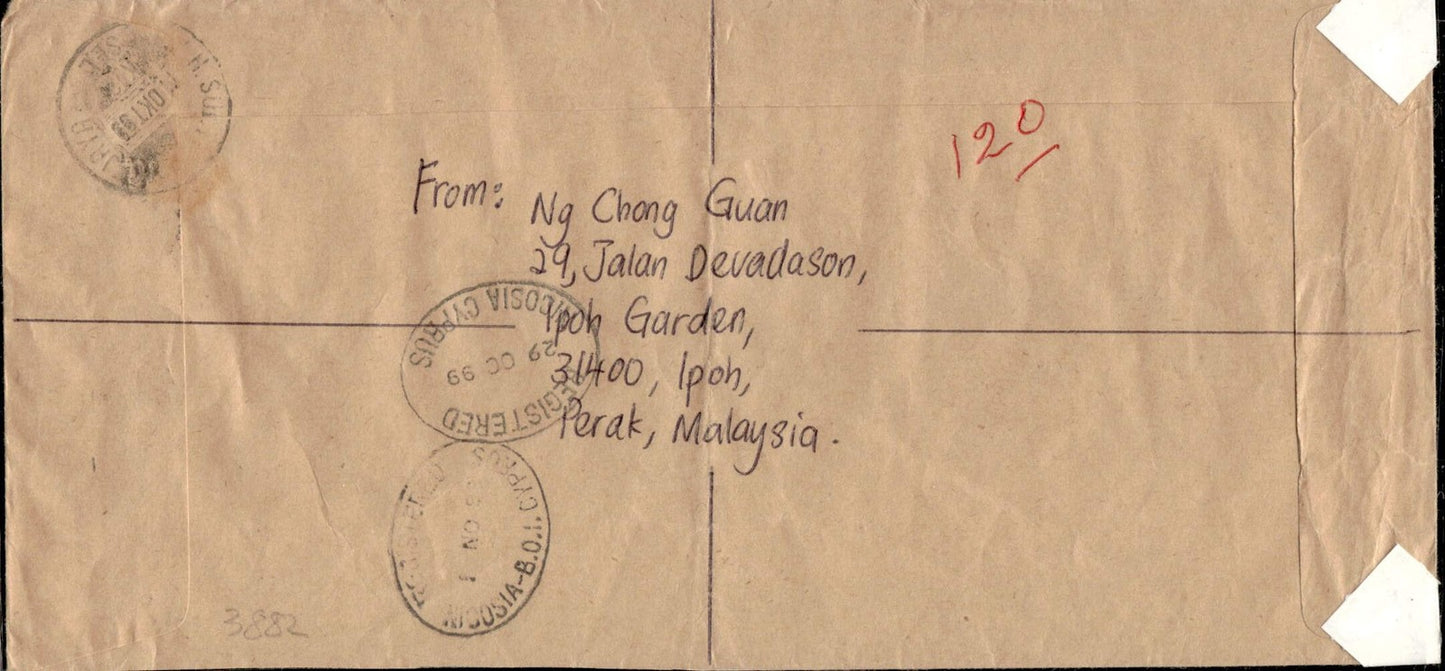 OKT 99
JAYA
120
From: Ng Chong Guan
29, Jalan Devadason,
Ipoh Garden,
31400, Ipoh,
Perak, Malaysia.
NICOSIA CYPRUS
29 OC 99
REGISTERED
REGISTERED
NICOSIA-B.O.I. CYPRUS
NO 99
3882